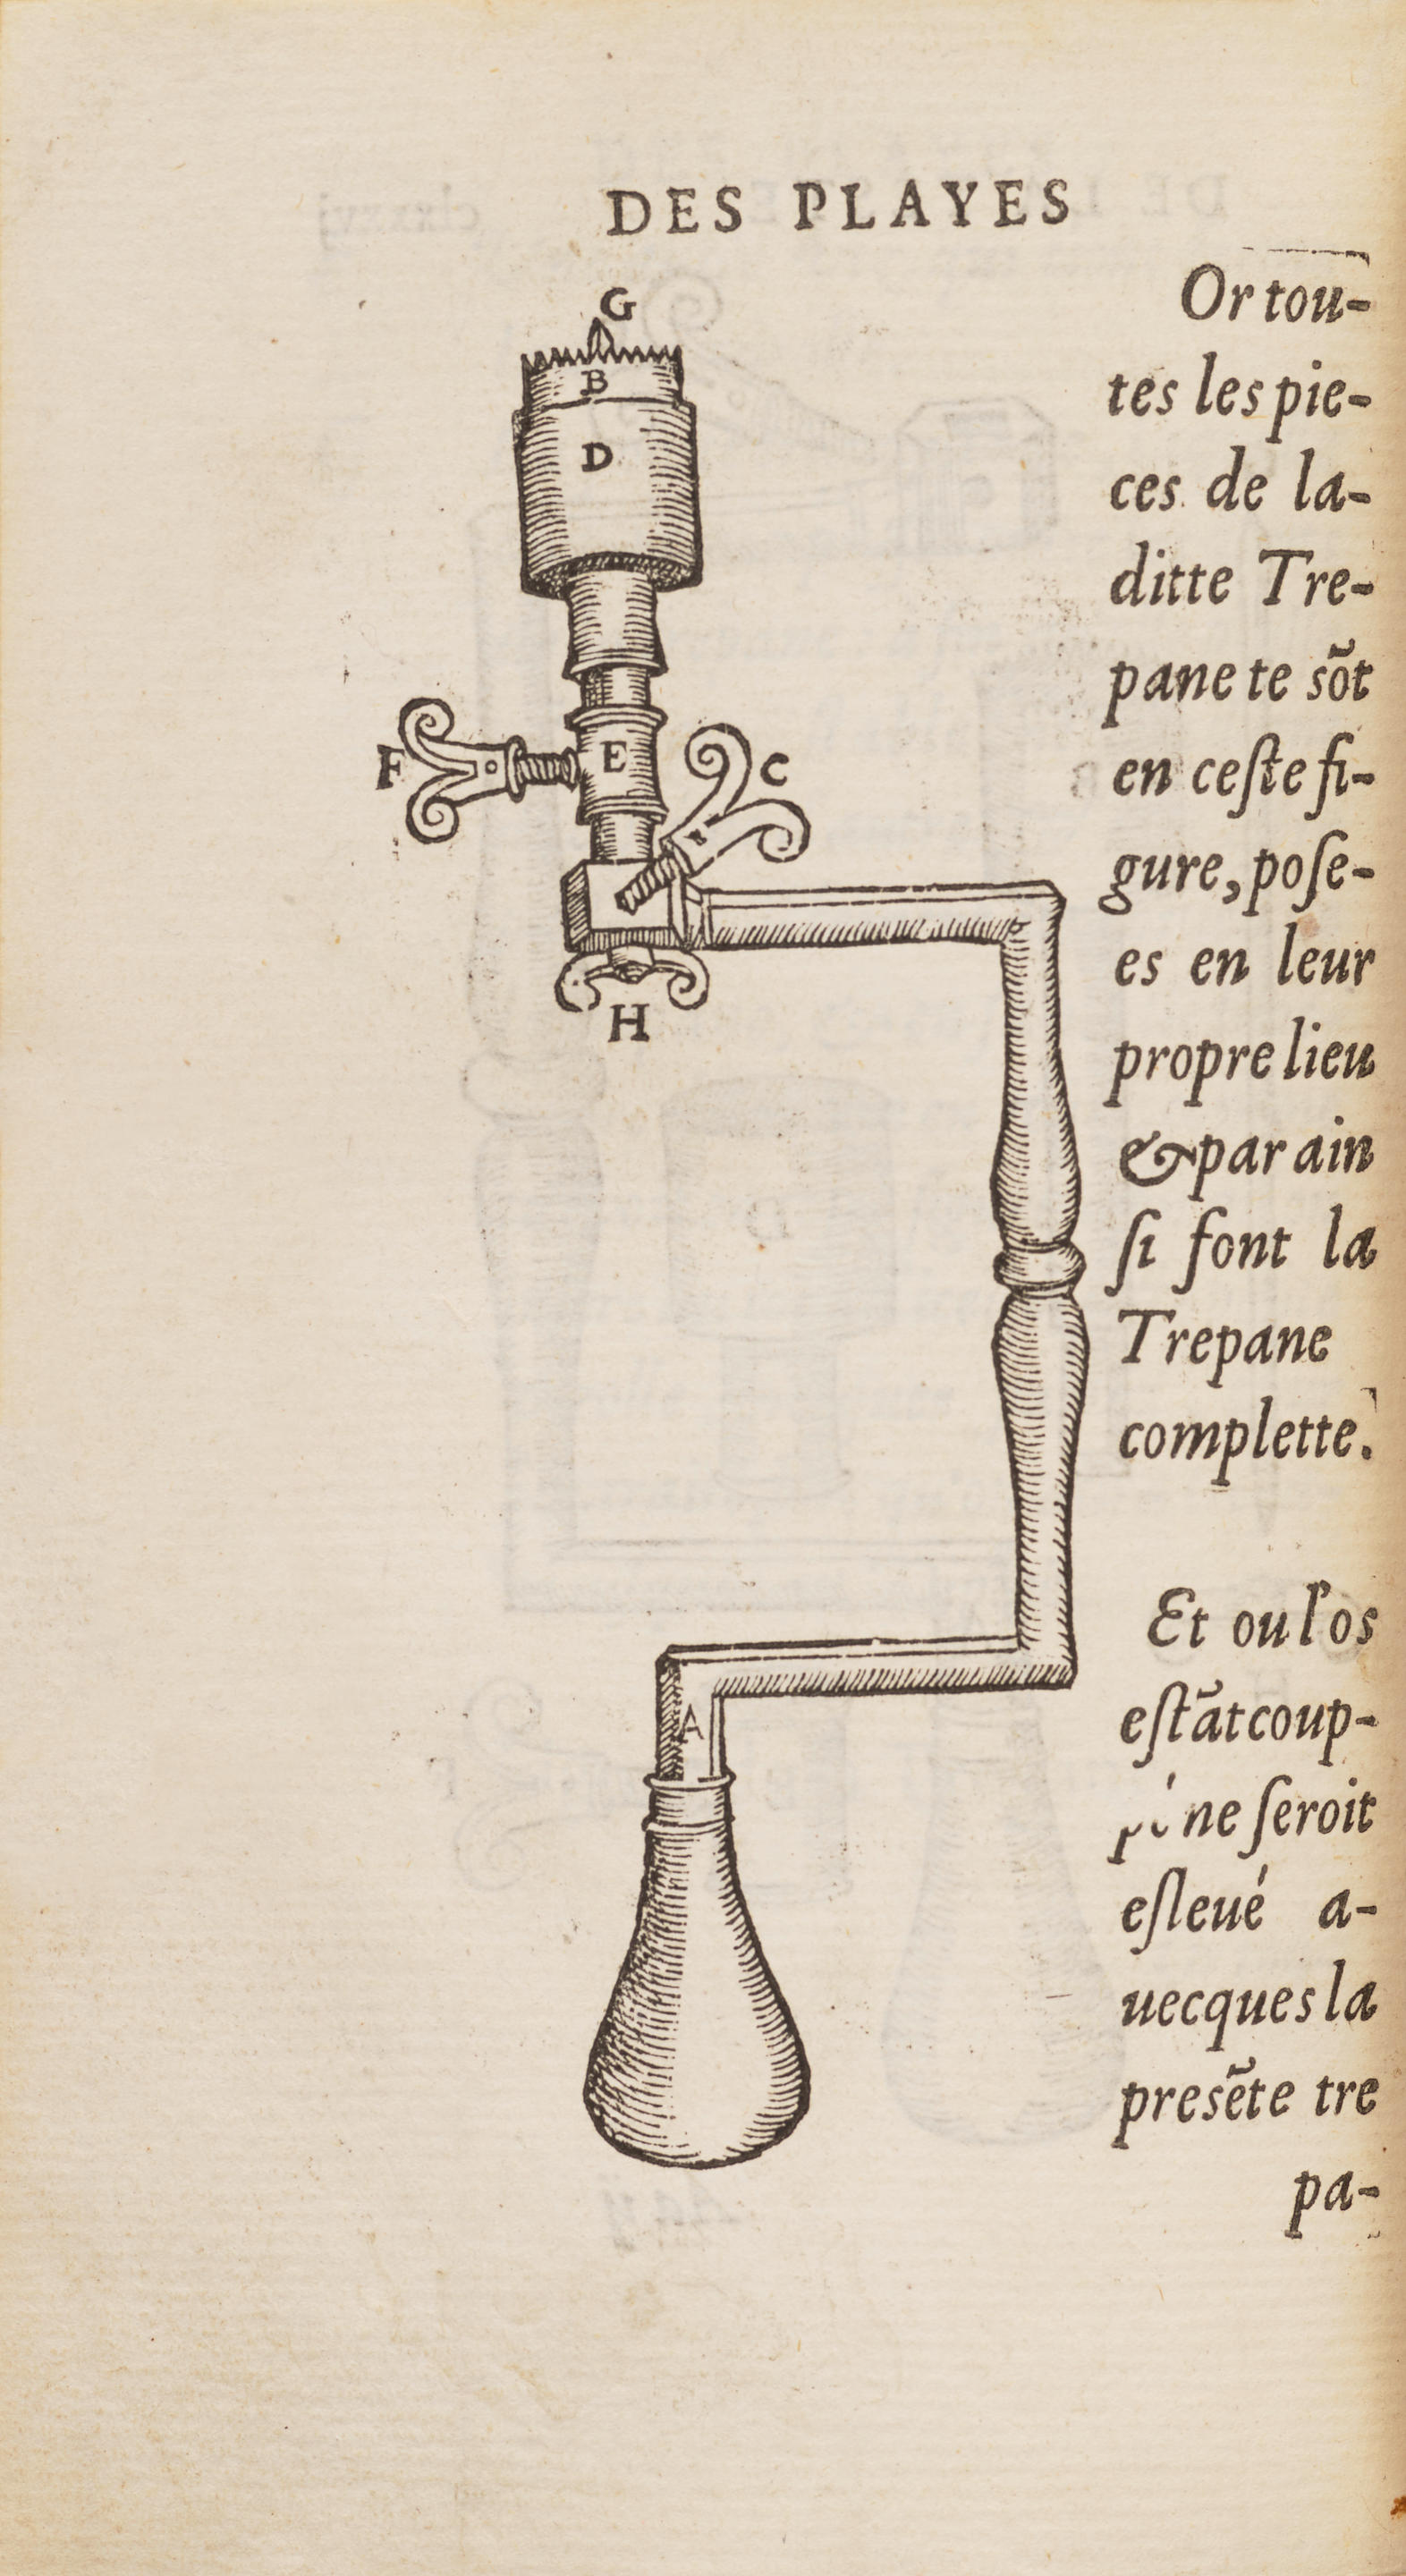 DES PLAYES
G
B
D
F
E
C
H
A
Or tou-
tes les pie-
ces de la-
ditte Tre-
pane te sõt
en ceſte fi-
gure, poſe-
es en leur
propre lieu
& par ain
ſi font la
Trepane
complette.
Et ou l'os
eſtãt coup-
pé ne ſeroit
eſleué a-
uecques la
presẽte tre
pa-